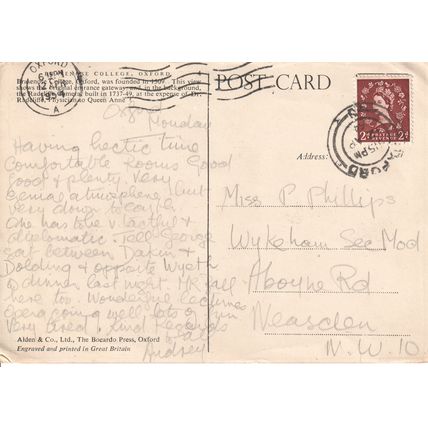 BRASENOSE COLLEGE, OXFORD
Brasenose College, Oxford, was founded in 1509. This view
shows the original entrance gateway, and in the view,
the Radcliffe Camera, built in 1737-49, at the expense of Dr.
Radcliffe, Physician to Queen Anne
POST CARD
OXFORD
A
Monday
Having hectic time
Comfortable rooms Good
food & plenty. Very
genial atmosphere but
very down to earth
One has to be v. tactful &
diplomatic. Tell George
sat between Dakin &
Dolding & opposite Wyeth
@ dinner last night. Mk
here too. Wonderful lectures
going well lots of
Very tired. Kind regards
to all
Audrey
Address:
Miss P Phillips
Wykeham Sec Mod
Aboyne Rd
Neasden
N.W. 10
2d POSTAGE REVENUE 2d
OXFORD
15 PM
Alden & Co., Ltd., The Bocardo Press, Oxford
Engraved and printed in Great Britain